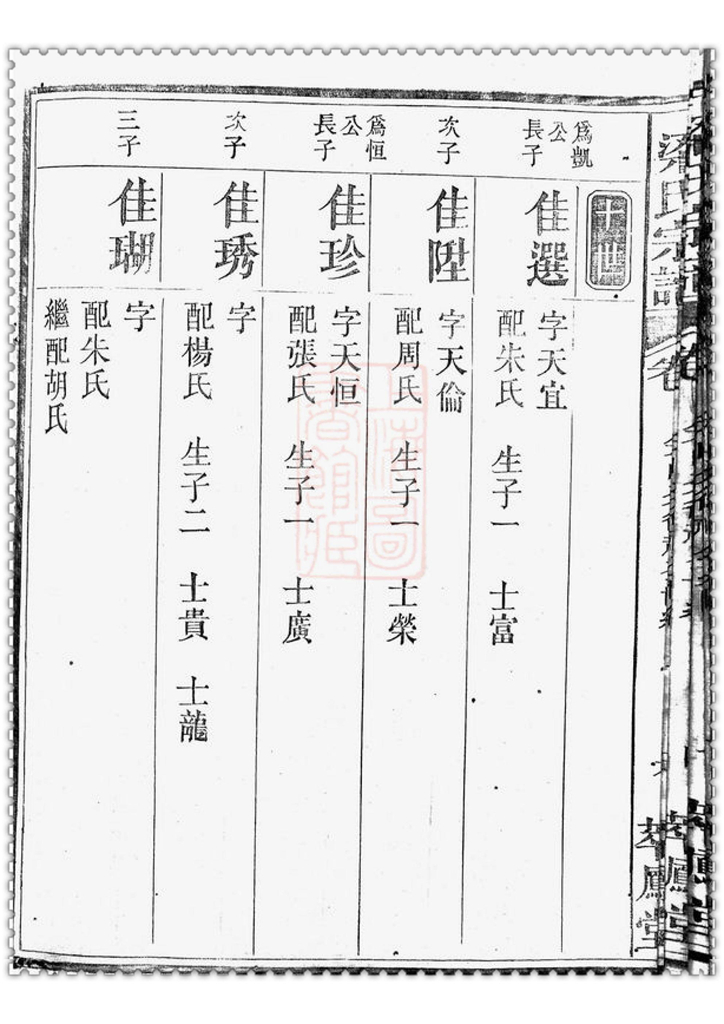 十世
爲凱
公
長子
佳選
字天宜
配朱氏 生子一 士富
次子
佳陞
字天倫
配周氏 生子一 士榮
爲恒
公
長子
佳珍
字天恒
配張氏 生子一 士廣
次子
佳琇
字
配楊氏 生子二 士貴 士龍
三子
佳瑚
字
配朱氏
繼配胡氏